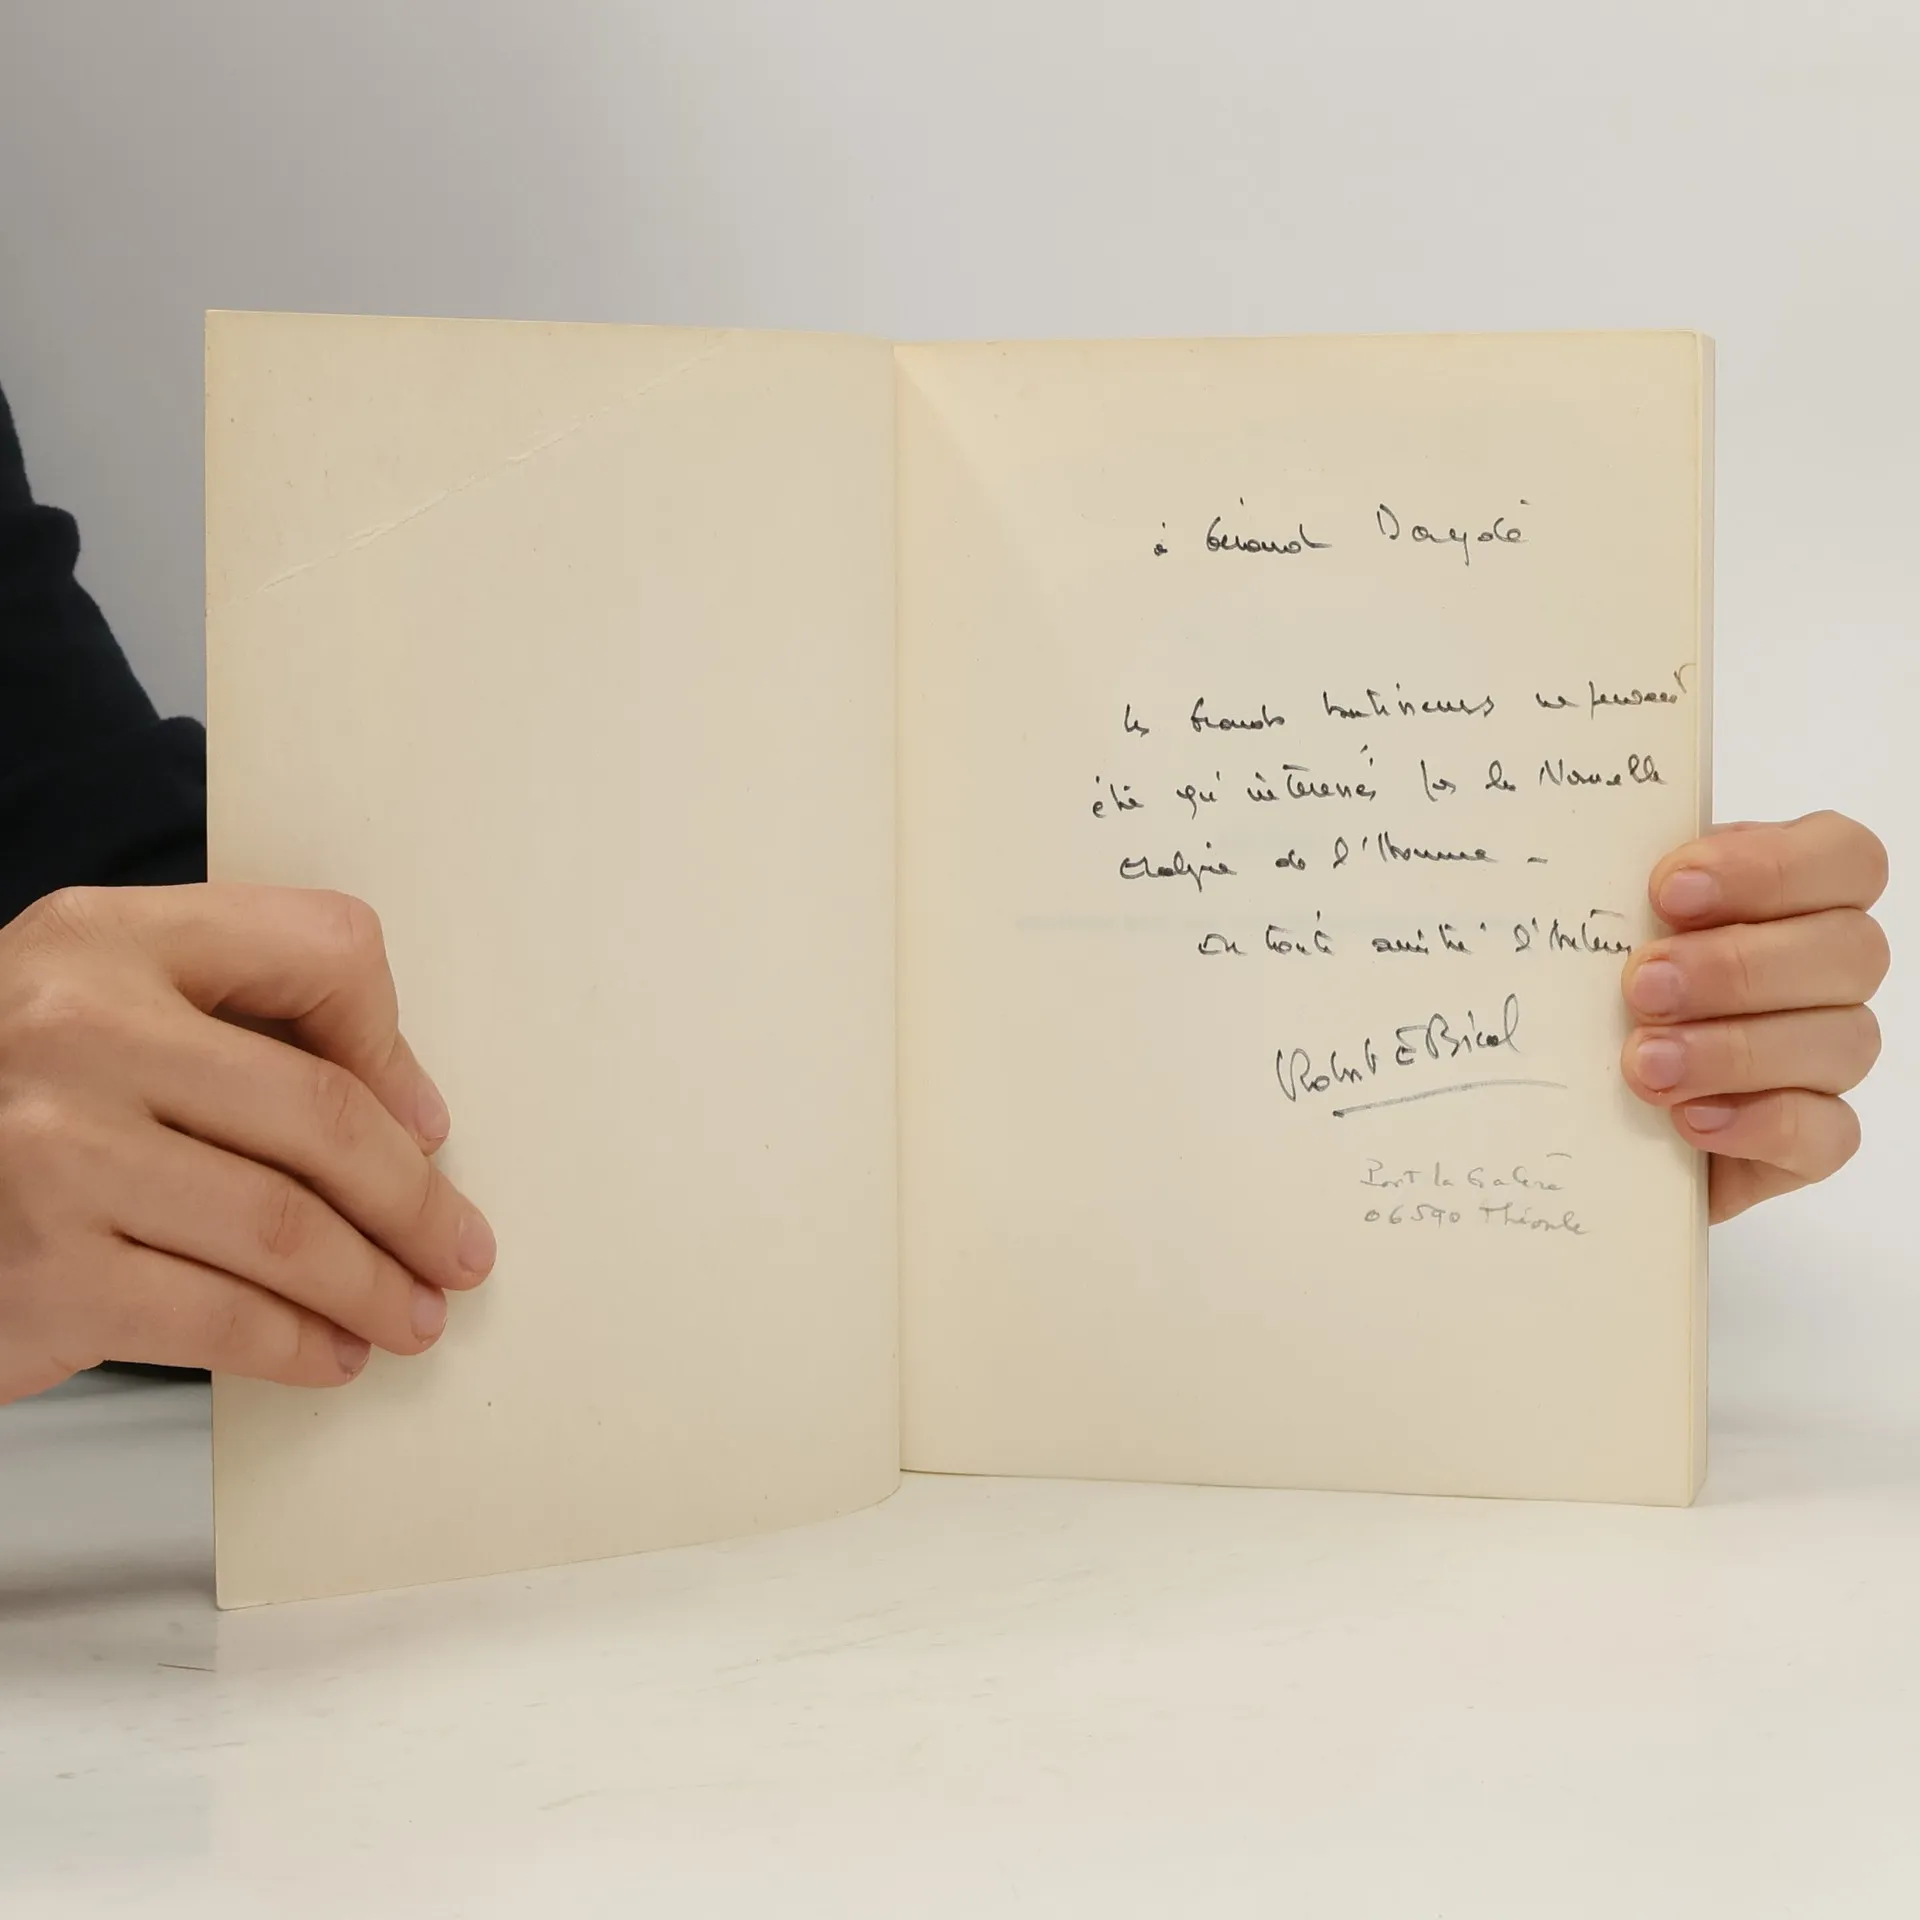 à Gérard Daydé
les Grands bâtisseurs ne peuvent
être qu'intéressés par la Nouvelle
de l'Homme -
En toute amitié l'Auteur
Robert E Bical
Port la Galère
06590 Théoule